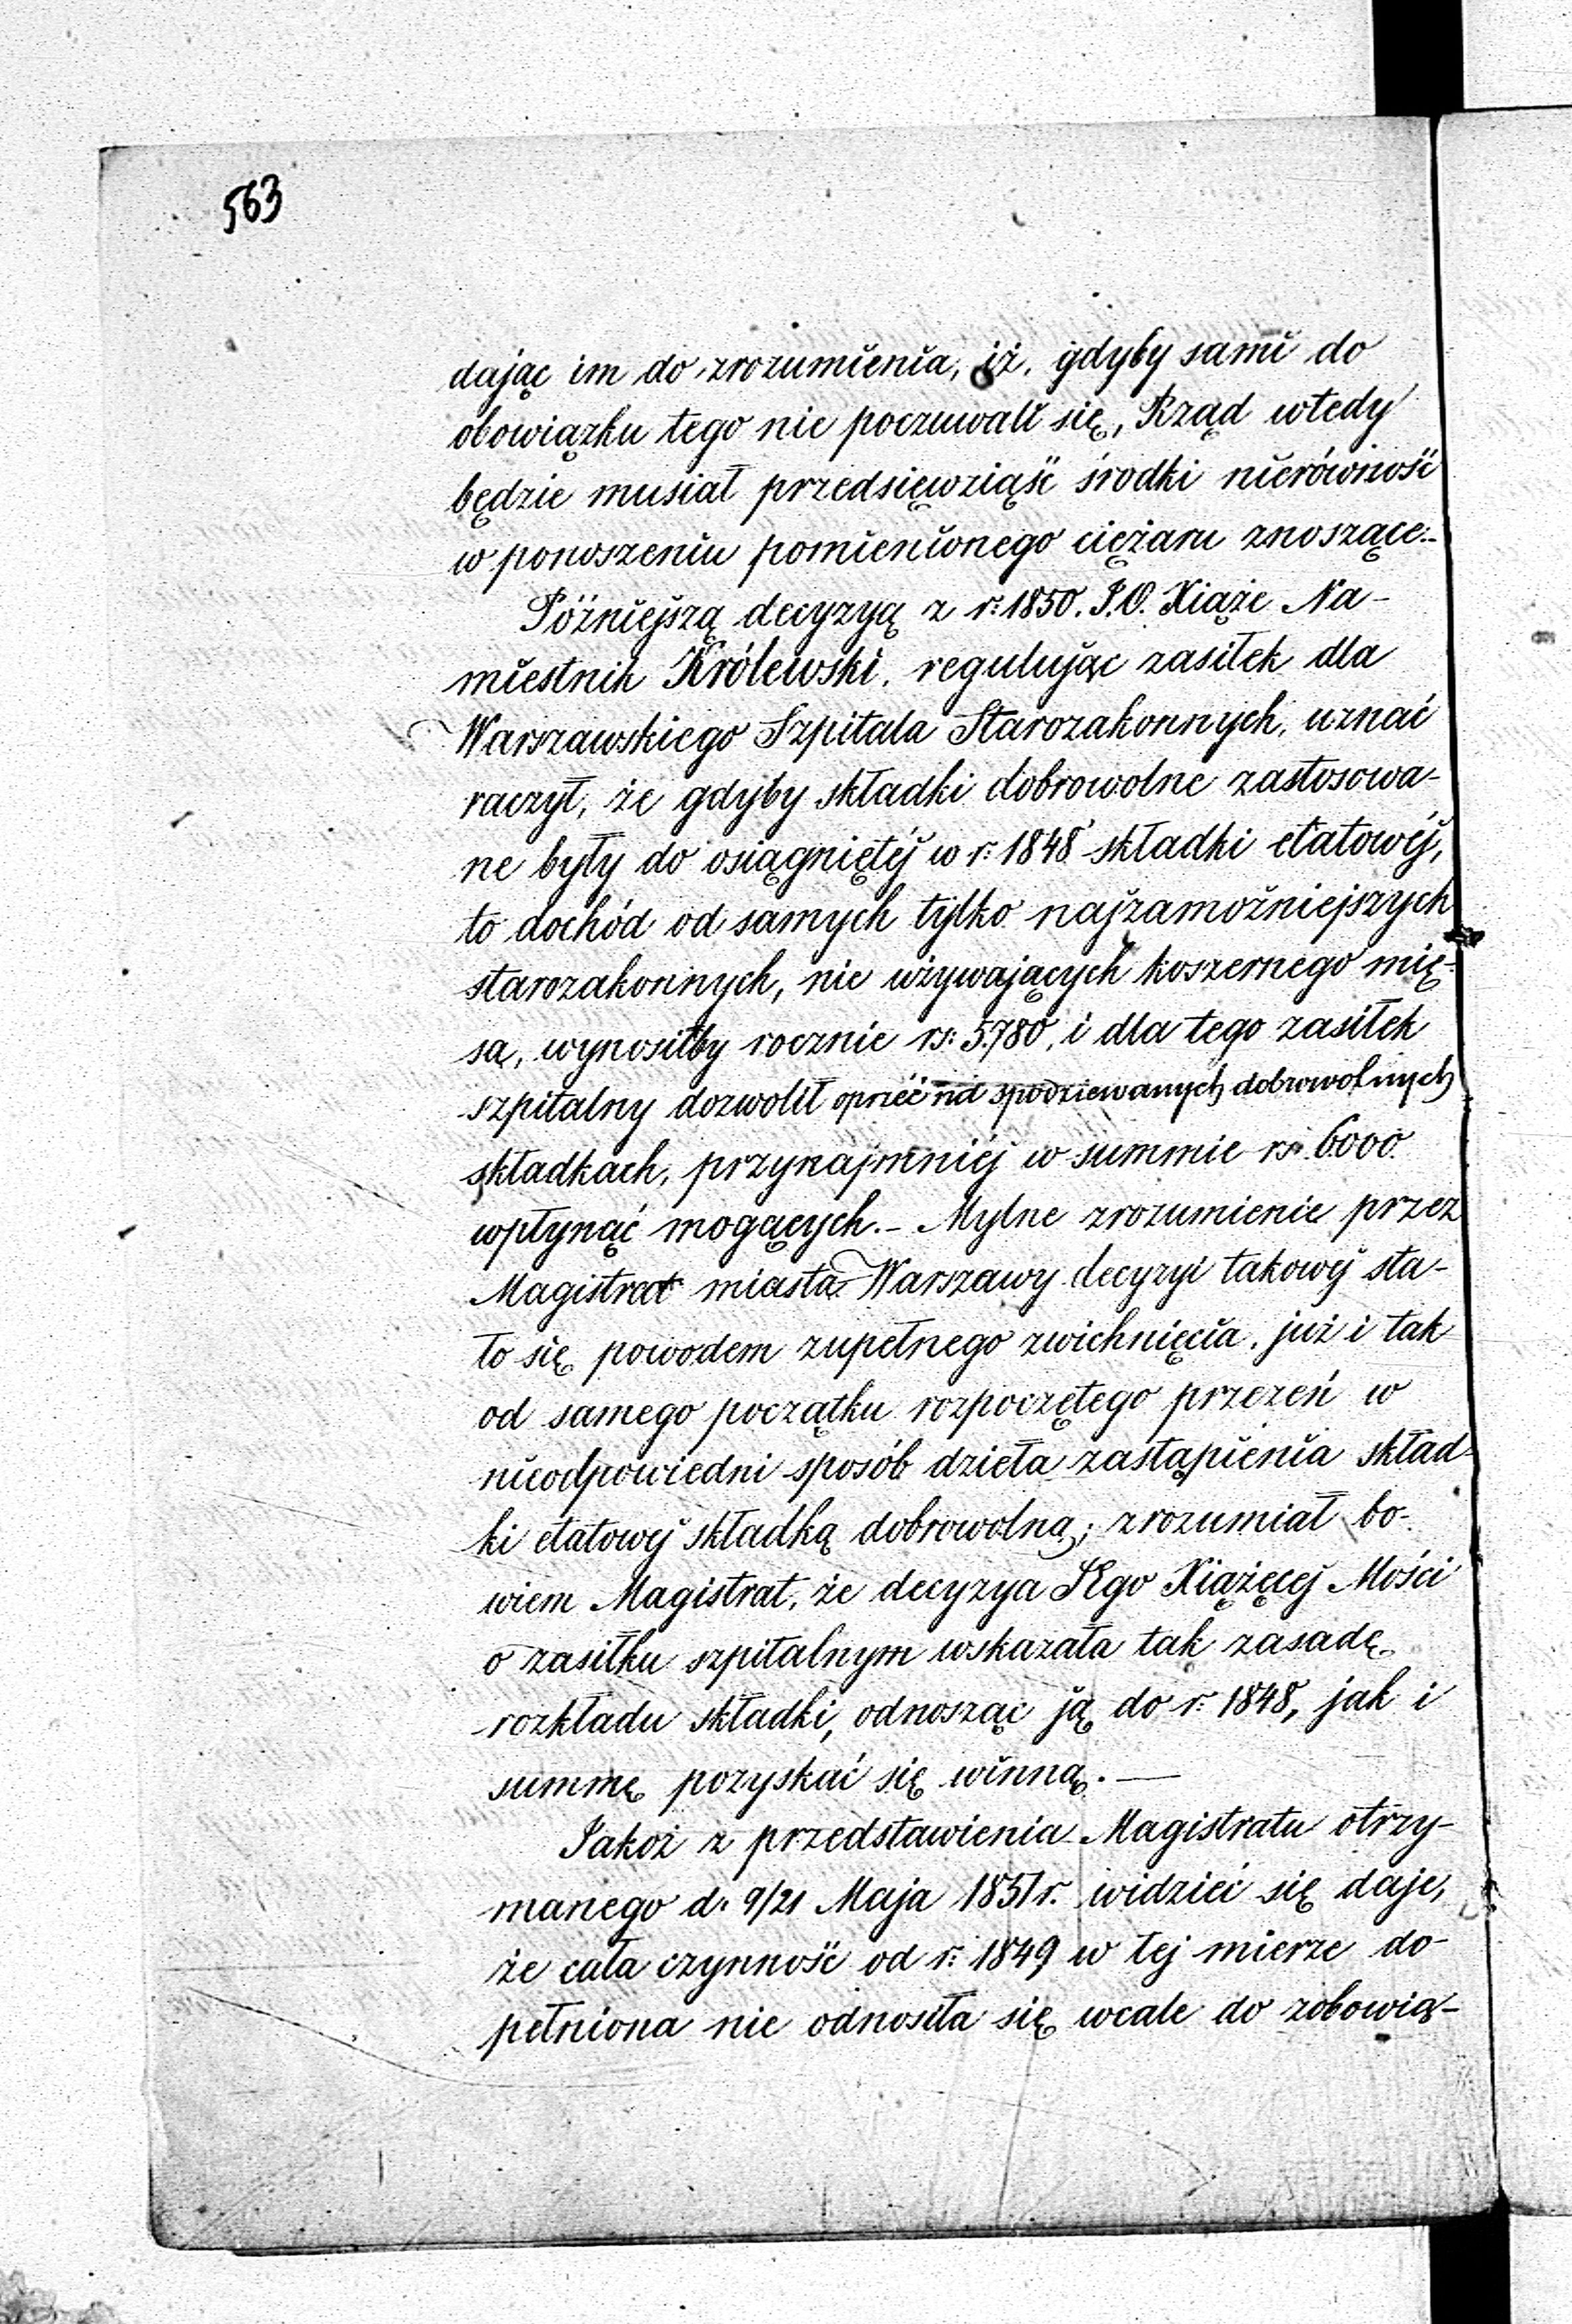 563
dając im do zrozumienia, iż, gdyby sami do
obowiązku tego nie poczuwali się, Rząd wtedy
będzie musiał przedsięwziąść środki nierówność
w ponoszeniu pomienionego ciężaru znoszące.-
Późniejszą decyzyą z r: 1850. J.O. Xiąże Na-
miestnik Królewski, regulując zasiłek dla
Warszawskiego Szpitala Starozakonnych, uznać
raczył, że gdyby składki dobrowolne zastosowa-
ne były do osiągniętéj w r: 1848 składki etatowéj,
to dochód od samych tylko najzamożniejszych
starozakonnych, nie używających koszernego mię-
sa, wynosiłby rocznie rs: 5780, i dla tego zasiłek
szpitalny dozwolił oprzéć na spodziewanych dobrowolnych
składkach, przynajmniéj w summie rs: 6000
wpłynąć mogących.- Mylne zrozumienie przez
Magistrat miasta Warszawy decyzyi takowéj sta-
ło się powodem zupełnego zwichnięcia, już i tak
od samego początku rozpoczętego przezeń w
nieodpowiedni sposób dzieła zastąpienia skład-
ki etatowej składką dobrowolną; zrozumiał bo-
wiem Magistrat, że decyzya JEgo Xiążęcej Mości
o zasiłku szpitalnym wskazała tak zasadę
rozkładu składki, odnosząc ją do r: 1848, jak i
summę pozyskać się winną. —
Jakoż z przedstawienia Magistratu otrzy-
manego d. 9/21 Maja 1851 r. widzieć się daje,
że cała czynność od r: 1849 w tej mierze do-
pełniona nie odnosiła się wcale do zobowią-